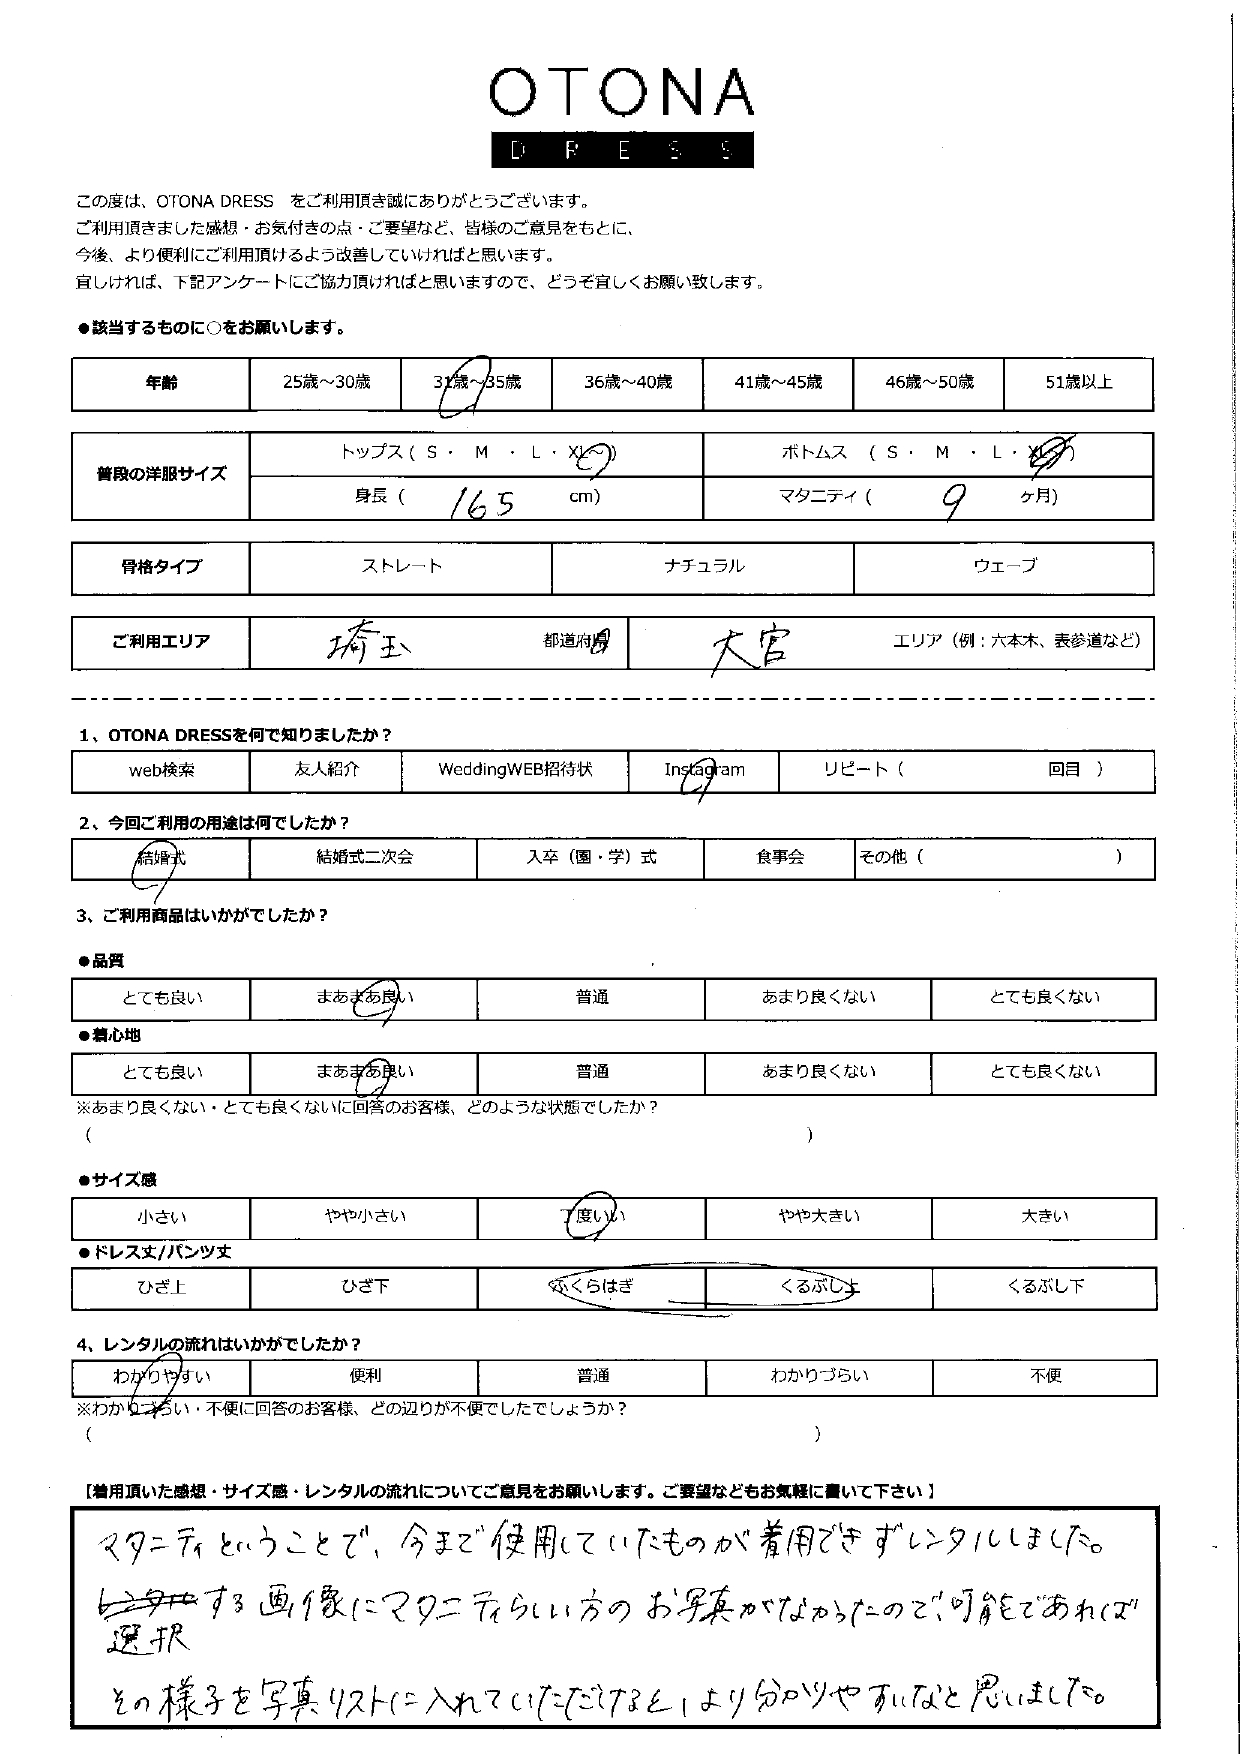 OTONA
DRESS
この度は、OTONA DRESS　をご利用頂き誠にありがとうございます。
ご利用頂きました感想・お気付きの点・ご要望など、皆様のご意見をもとに、
今後、より便利にご利用頂けるよう改善していければと思います。
宜しければ、下記アンケートにご協力頂ければと思いますので、どうぞ宜しくお願い致します。
●該当するものに○をお願いします。
年齢 25歳～30歳 31歳～35歳 36歳～40歳 41歳～45歳 46歳～50歳 51歳以上
普段の洋服サイズ トップス ( S ・ M ・ L ・ XL～) ボトムス ( S ・ M ・ L ・ XL～)
身長 ( 165 cm) マタニティ ( 9 ヶ月)
骨格タイプ ストレート ナチュラル ウェーブ
ご利用エリア 埼玉 都道府県 大宮 エリア（例：六本木、表参道など）
1、OTONA DRESSを何で知りましたか？
web検索 友人紹介 WeddingWEB招待状 Instagram リピート（ 回目 ）
2、今回ご利用の用途は何でしたか？
結婚式 結婚式二次会 入卒（園・学）式 食事会 その他（ ）
3、ご利用商品はいかがでしたか？
●品質
とても良い まあまあ良い 普通 あまり良くない とても良くない
●着心地
とても良い まあまあ良い 普通 あまり良くない とても良くない
※あまり良くない・とても良くないに回答のお客様、どのような状態でしたか？
( )
●サイズ感
小さい やや小さい 丁度いい やや大きい 大きい
●ドレス丈/パンツ丈
ひざ上 ひざ下 ふくらはぎ くるぶし上 くるぶし下
4、レンタルの流れはいかがでしたか？
わかりやすい 便利 普通 わかりづらい 不便
※わかりづらい・不便に回答のお客様、どの辺りが不便でしたでしょうか？
( )
【着用頂いた感想・サイズ感・レンタルの流れについてご意見をお願いします。ご要望などもお気軽に書いて下さい】
マタニティということで、今まで使用していたものが着用できずレンタルしました。
レンタルする画像にマタニティらしい方のお写真がなかったので、可能であれば
選択
その様子を写真リストに入れていただけると、より分かりやすいなと思いました。